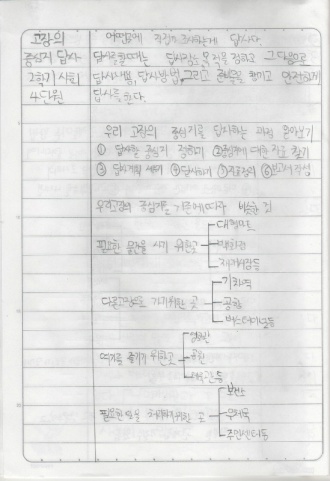 고장의
중심지 답사
2학기 사회
4단원
직접 조사하는게 답사다.
답사를 할때는 목적을 정하고 그 다음으로
답사내용, 답사방법, 그리고 챙기고 안전하게
답사를 한다.
우리 고장의 중심지를 답사하는 과정 알아보기
① 답사할 중심지 정하기 ② 에 대한 자료 찾기
③ 답사계획 세우기 ④ 답사하기 ⑤ ⑥ 보고서 작성
우리 고장의 중심지를 기준에 따라 비슷한 것
필요한 물건을 사기 위한 곳
대형마트
백화점
재래시장 등
다른 고장으로 가기 위한 곳
기차역
공항
버스터미널 등
여가를 즐기기 위한 곳
공원
필요한 일을 처리하기 위한 곳
우체국
주민센터 등